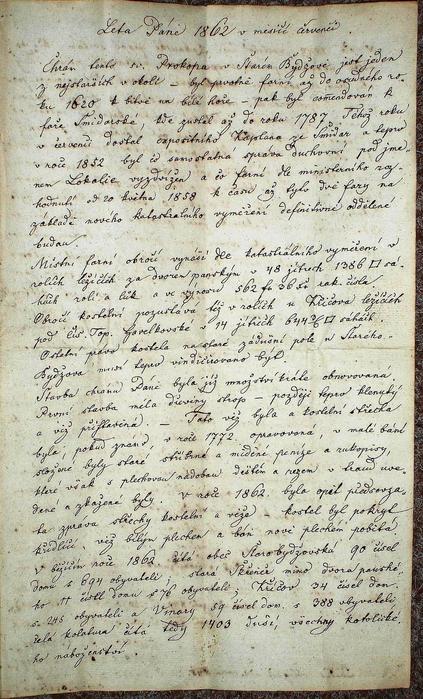 Léta Páně 1862 v měsíci červenci
Chrám tento sv. Prokopa v Starém Bydžově jest jeden
z nejstarších v okolí – byl prvotně farní až do osudného ro-
ku 1620 k bitvě na bílé hoře – pak byl comendován k
faře Šmidarské kde zustal až do roku 1787. Téhož roku
v červenci dostal expositního kaplana ze Šmidar a teprv
v roce 1852 byl co samostatná správa duchovní pod jmé-
nem Lokalie vyzdvižen a co farní dle ministerního roz-
hodnutí od 20 května 1858 k času až byly dvě fary na
základě nového katastrálního vyměření definitivně oddělené
budou.
Místní farní obročí vynáší dle katastrálního vyměření v
rolích ležících za dvorem panským v 48 jitrech 1386 □ sá-
hách rolí a luk a ve výnosu 562 fr 36 rak. čísla
Obročí kostelní pozustává též v rolích u Křičova ležících
pod čís. Top. Havelkovské v 14 jitrách 644 □ sáhách.
Ostatní právo kostela na staré záduční pole v Starého-
Bydžova musí teprv vindicirováno být.
Stavba chrámu Páně byla již množství kráte obnovována.
První stavba měla dřevěný strop – později teprv klenutý
a věž přistavěna. – Tato věž byla a kostelní střecha
byla, pokud známo, v roce 1772 opravována, v malé báni
složené byly staré stříbrné a měděné peníze a rukopisy,
které však s plechovou nádobou deštěm a rezem v
dené a zkažené byly. V roce 1862 byla opět předsevza-
ta zprava střechy kostelní a věže – kostel byl pokryt
křidlicí věž bílým plechem a báň nově plechem pobitá
V běžícím roce 1862 čítá obec Starobydžovská 90 čísel
domů s 694 obyvateli, stará Skřeněř mimo dvora panské-
ho 11 čísel domu s 76 obyvateli, Křičov 34 čísel dom.
s 245 obyvateli a Vinary 59 čísel dom. s 388 obyvateli
celá kolatura čítá tedy 1403 duší, všechny katolické-
ho náboženství.